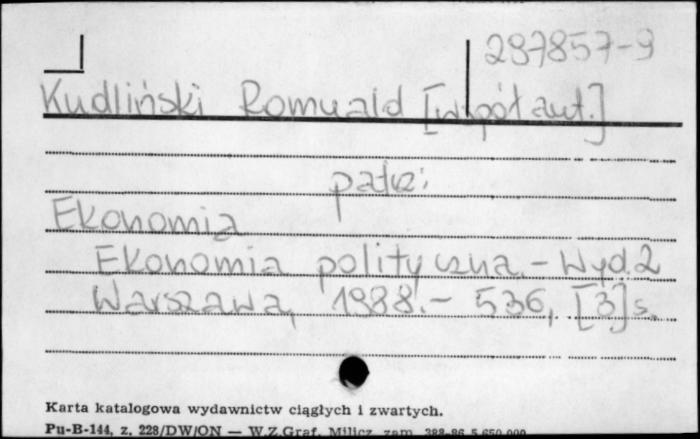 297857-9
Kudliński Romuald [współaut.]
patrz:
Ekonomia
Ekonomia polityczna. - Wyd. 2
Warszawa, 1988. - 536, [3] s.
Karta katalogowa wydawnictw ciągłych i zwartych.
Pu-B-144, z. 228/DW/ON — W.Z.Graf. Milicz, zam. 388-86 5.650.000